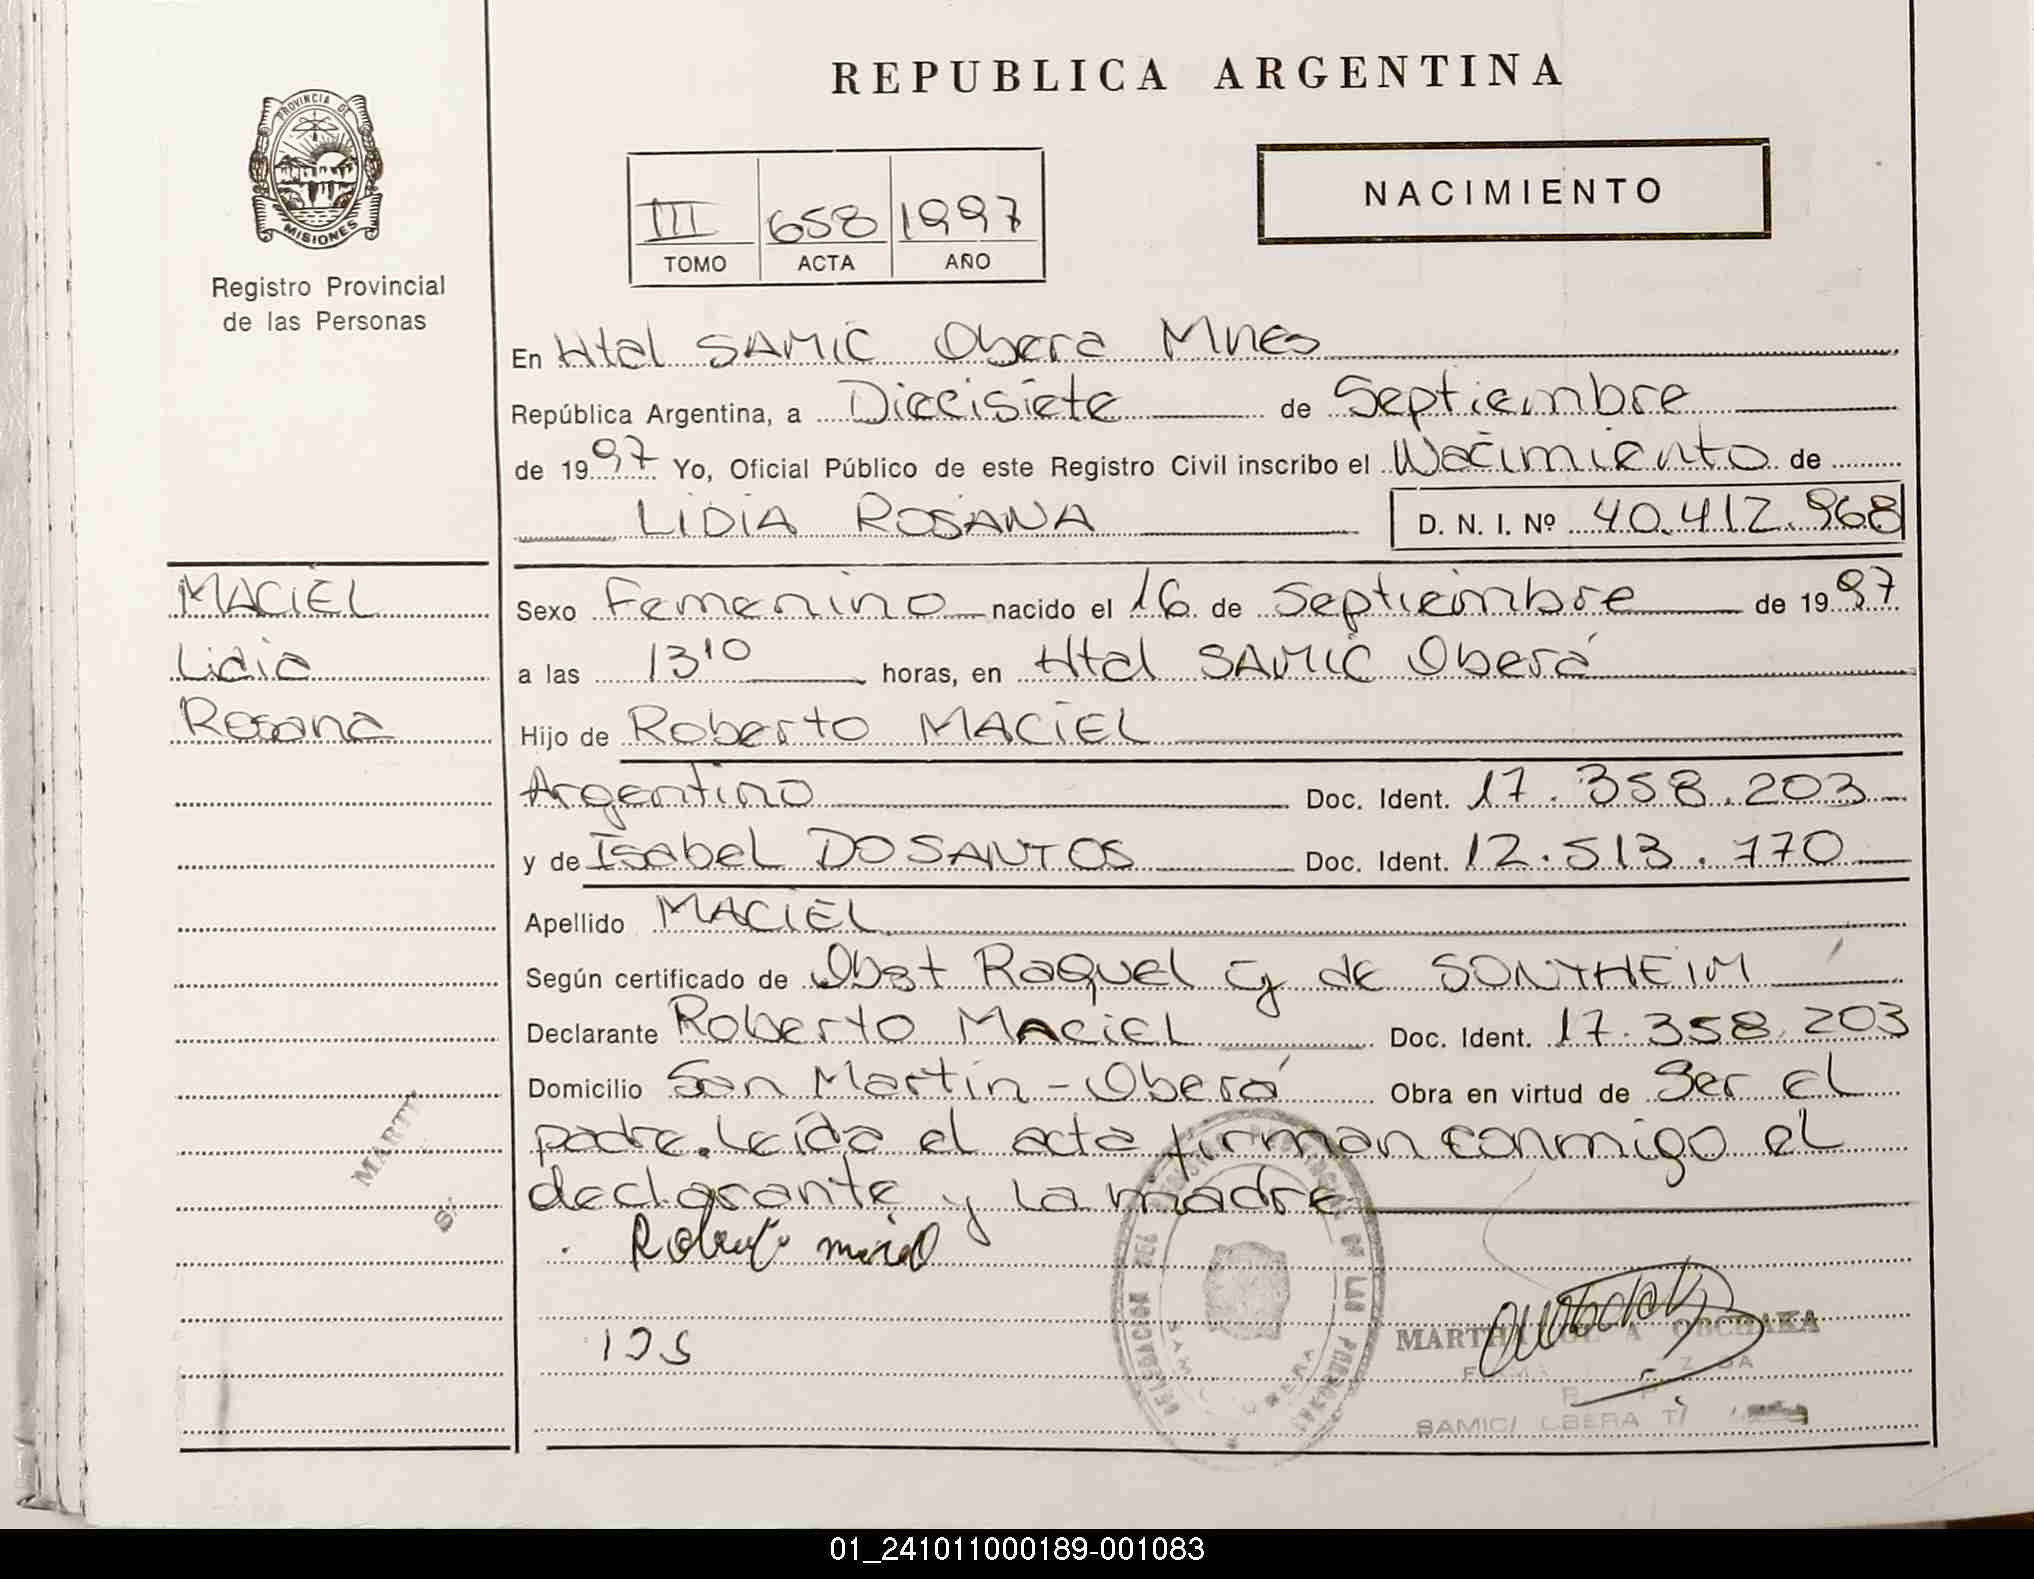 REPUBLICA ARGENTINA
PROVINCIA DE
MISIONES
Registro Provincial
de las Personas
III 658 1997
TOMO ACTA AÑO
NACIMIENTO
En Htal SAMIC Obera Mnes
República Argentina, a Diecisiete de Septiembre
de 1997 Yo, Oficial Público de este Registro Civil inscribo el Nacimiento de
LIDIA ROSANA D. N. I. Nº 40.412.968
MACIEL
Lidia
Rosana
Sexo Femenino nacido el 16 de Septiembre de 1997
a las 13 10 horas, en Htal SAMIC Oberá
Hijo de Roberto MACIEL
Argentino Doc. Ident. 17.358.203
y de Isabel DOSANTOS Doc. Ident. 12.513.770
Apellido MACIEL
Según certificado de Obst Raquel G de SONTHEIM
Declarante Roberto MACIEL Doc. Ident. 17.358.203
Domicilio San Martín - Oberá Obra en virtud de Ser el
padre. Leída el acta firman conmigo el
declarante y la madre
Roberto maciel
MARTHA OBCHAKA
SAMIC OBERA
01_241011000189-001083